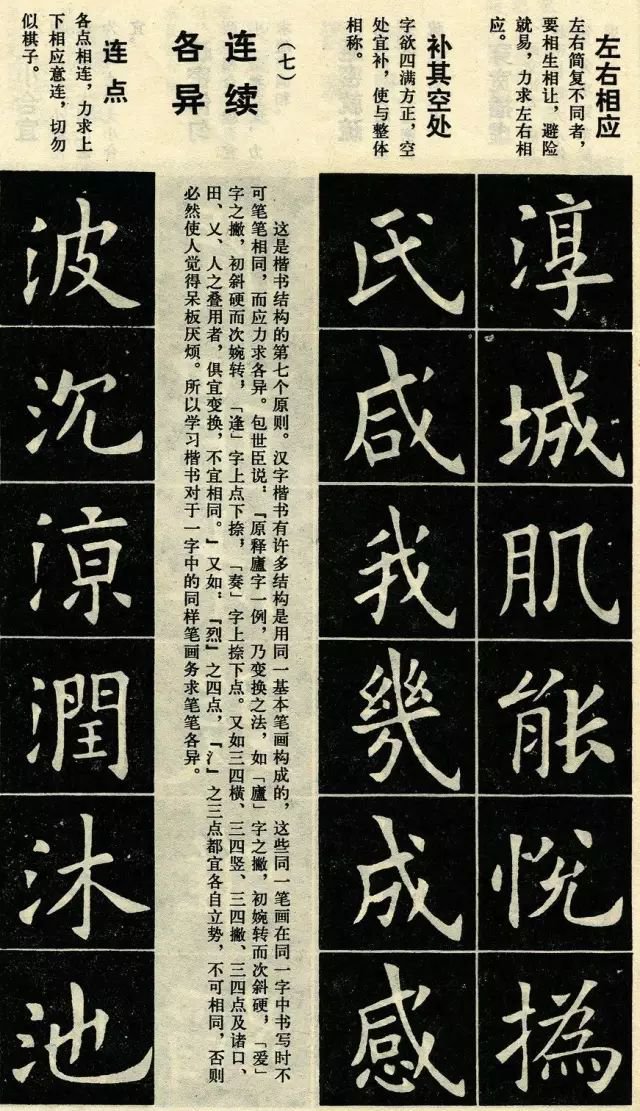 左右相应
左右简复不同者，
要相生相让，避险
就易，力求左右相
应。
淳
城
肌
能
悦
撝
补其空处
字欲四满方正，空
处宜补，使与整体
相称。
氏
咸
我
幾
成
感
（七）
连续
各异
这是楷书结构的第七个原则。汉字楷书有许多结构是用同一基本笔画构成的，这些同一笔画在同一字中书写时不
可笔笔相同，而应力求各异。包世臣说：『原释廬字一例，乃变换之法，如「廬」字之撇，初婉转而次斜硬，「爱」
字之撇，初斜硬而次婉转，「逢」字上点下捺，「奏」字上捺下点。又如三四横、三四竖、三四撇、三四点及诸口、
田、又、人之叠用者，俱宜变换，不宜相同。』又如：『烈』之四点，『氵』之三点都宜各自立势，不可相同，否则
必然使人觉得呆板厌烦。所以学习楷书对于一字中的同样笔画务求笔笔各异。
连点
各点相连，力求上
下相应意连，切勿
似棋子。
波
沉
涼
潤
沐
池